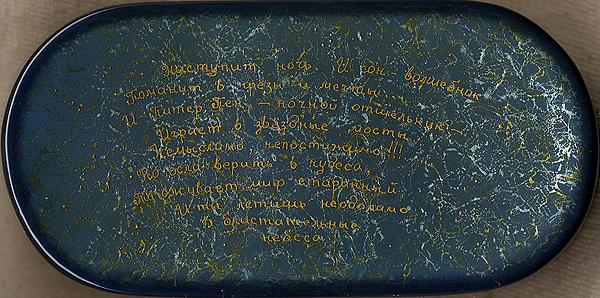 Наступит ночь. И сон-волшебник
Поманит в грёзы и мечты...
И Питер Пен, – ночной отшельник –
Играет в звёздные мосты
Немыслимо непостижимо!!!
Но если верить в чудеса,
мир старинный
И ты летишь неодолимо
В блистательные
небеса